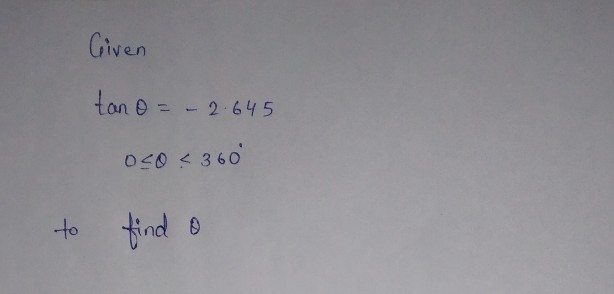 Given
tan θ = - 2.645
0≤θ ≤ 360°
to find θ